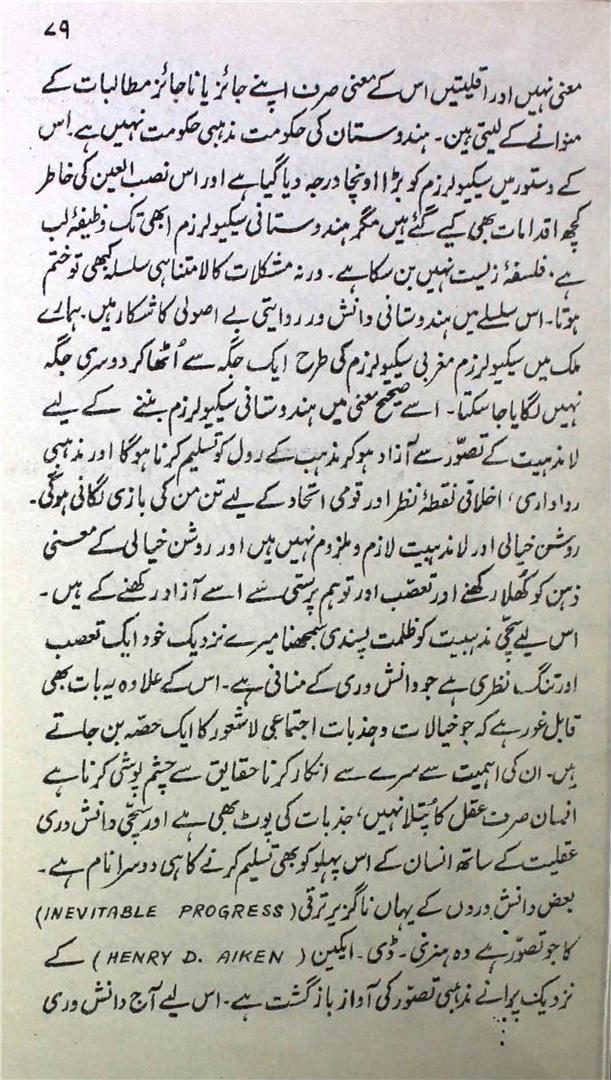 ۷۹
معنی نہیں اور اقلیتیں اس کے معنی صرف اپنے جائز یا ناجائز مطالبات کے
منوانے کے لیتی ہیں۔ ہندوستان کی حکومت مذہبی حکومت نہیں ہے۔ اس
کے دستور میں سیکیولرزم کو بڑا اونچا درجہ دیا گیا ہے اور اس نصب العین کی خاطر
کچھ اقدامات بھی کیے گئے ہیں مگر ہندوستانی سیکیولرزم ابھی تک وظیفۂ لب
ہے، فلسفۂ زیست نہیں بن سکا ہے۔ ورنہ مشکلات کا لامتناہی سلسلہ کبھی تو ختم
ہوتا۔ اس سلسلے میں ہندوستانی دانش ور روایتی بے اصولی کا شکار ہیں۔ ہمارے
ملک میں سیکیولرزم مغربی سیکیولرزم کی طرح ایک جگہ سے اُٹھا کر دوسری جگہ
نہیں لگایا جا سکتا۔ اسے صحیح معنی میں ہندوستانی سیکیولرزم بننے کے لیے
لامذہبیت کے تصوّر سے آزاد ہو کر مذہب کے رول کو تسلیم کرنا ہوگا اور مذہبی
رواداری، اخلاقی نقطۂ نظر اور قومی اتحاد کے لیے تن من کی بازی لگانی ہوگی۔
روشن خیالی اور لامذہبیت لازم و ملزوم نہیں ہیں اور روشن خیالی کے معنی
ذہن کو کھُلا رکھنے اور تعصب اور توہم پرستی سے اسے آزاد رکھنے کے ہیں۔
اس لیے سچّی مذہبیت کو ظلمت پسندی سمجھنا میرے نزدیک خود ایک تعصب
اور تنگ نظری ہے جو دانش وری کے منافی ہے۔ اس کے علاوہ یہ بات بھی
قابل غور ہے کہ جو خیالات و جذبات اجتماعی لاشعور کا ایک حصّہ بن جاتے
ہیں۔ ان کی اہمیت سے سرے سے انکار کرنا حقایق سے چشم پوشی کرنا ہے
انسان صرف عقل کا پُتلا نہیں، جذبات کی پوٹ بھی ہے اور سچّی دانش وری
عقلیت کے ساتھ انسان کے اس پہلو کو بھی تسلیم کرنے کا ہی دوسرا نام ہے۔
بعض دانش وروں کے یہاں ناگزیر ترقی (INEVITABLE PROGRESS)
کا جو تصوّر ہے وہ ہنری۔ ڈی۔ ایکین (HENRY D. AIKEN) کے
نزدیک پرانے مذہبی تصوّر کی آواز بازگشت ہے۔ اس لیے آج دانش وری